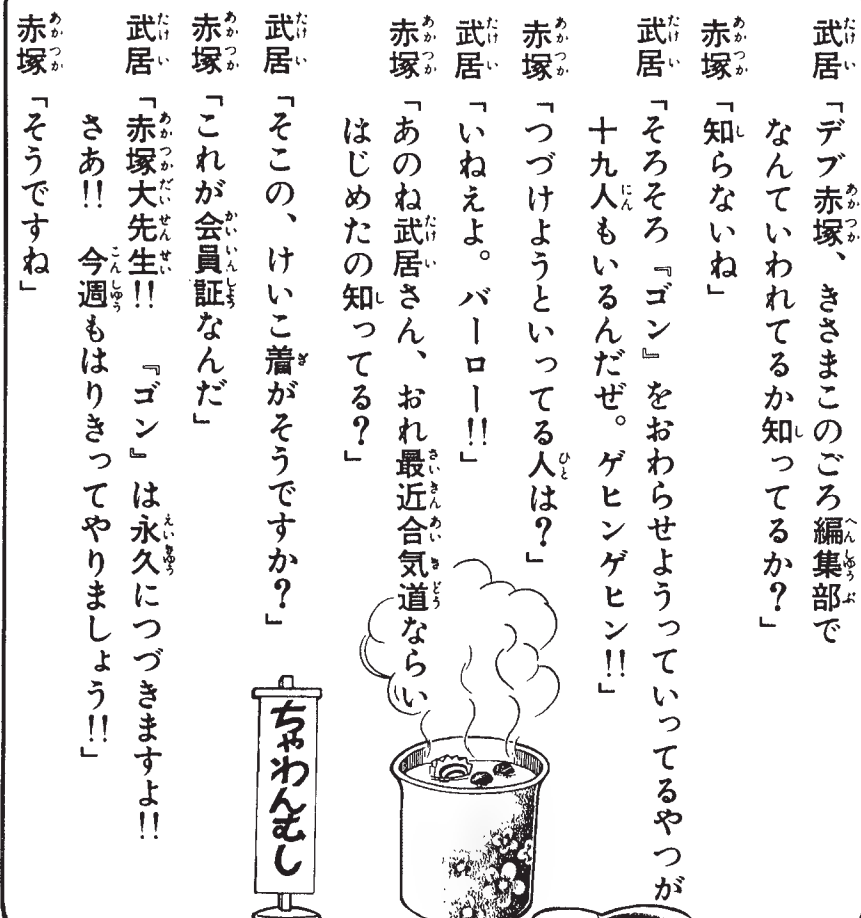 武居「デブ赤塚、きさまこのごろ編集部で
なんていわれてるか知ってるか？」
赤塚「知らないね」
武居「そろそろ『ゴン』をおわらせようっていってるやつが
十九人もいるんだぜ。ゲヒンゲヒン!!」
赤塚「つづけようといってる人は？」
武居「いねえよ。バーロー!!」
赤塚「あのね武居さん、おれ最近合気道ならい
はじめたの知ってる？」
武居「そこの、けいこ着がそうですか？」
赤塚「これが会員証なんだ」
武居「赤塚大先生!!　『ゴン』は永久につづきますよ!!
さあ!!　今週もはりきってやりましょう!!」
赤塚「そうですね」
ちゃわんむし